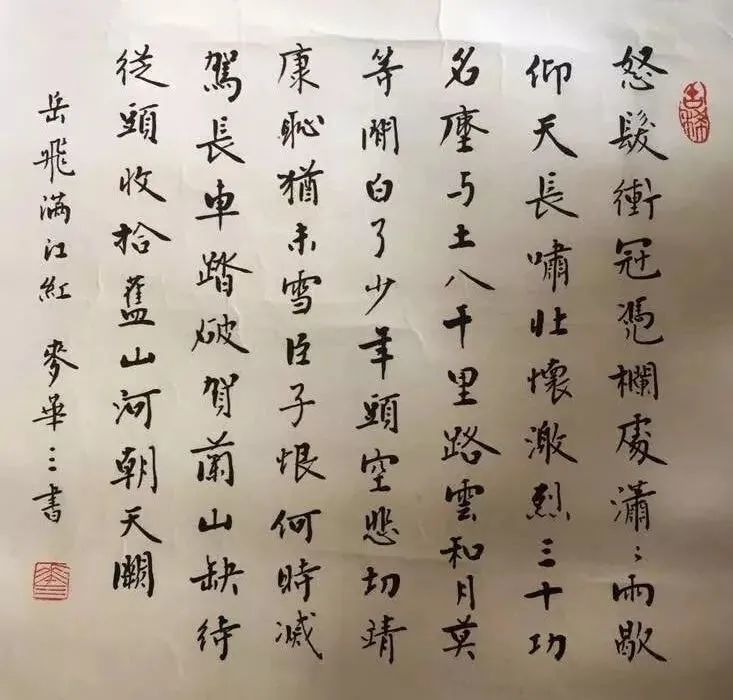 怒髮衝冠憑欄處瀟〻雨歇
仰天長嘯壯懷激烈三十功
名塵与土八千里路雲和月莫
等閒白了少年頭空悲切靖
康恥猶未雪臣子恨何時滅
駕長車踏破賀蘭山缺待
從頭收拾舊山河朝天闕
岳飛滿江紅 麥華三書
古稀